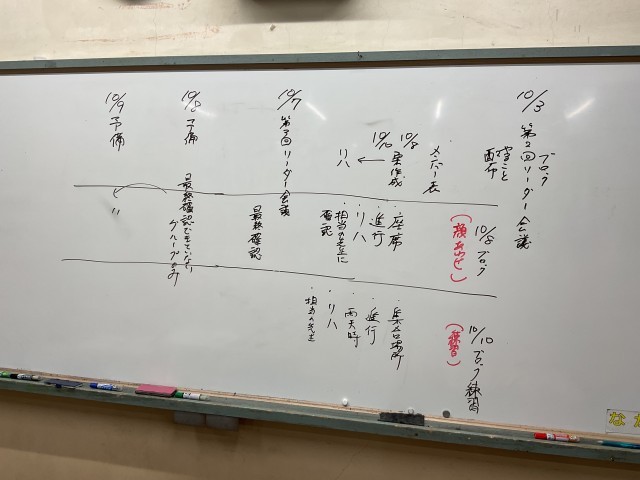 10/3 第2回リーダー会議
ブロック
やること
配布
メンバー表
10/8
10/10 案作成
← リハ
10/7 第3回リーダー会議
10/8 予備
10/9 予備
10/8 ブロック
(顔あわせ)
・座席
・進行
・リハ
・担当の先生に
確認
最終確認
最終確認できていない
グループのみ
〃
10/10 ブロック練習
(練習)
・集合場所
・進行
・雨天時
・リハ
・担当の先生
なか